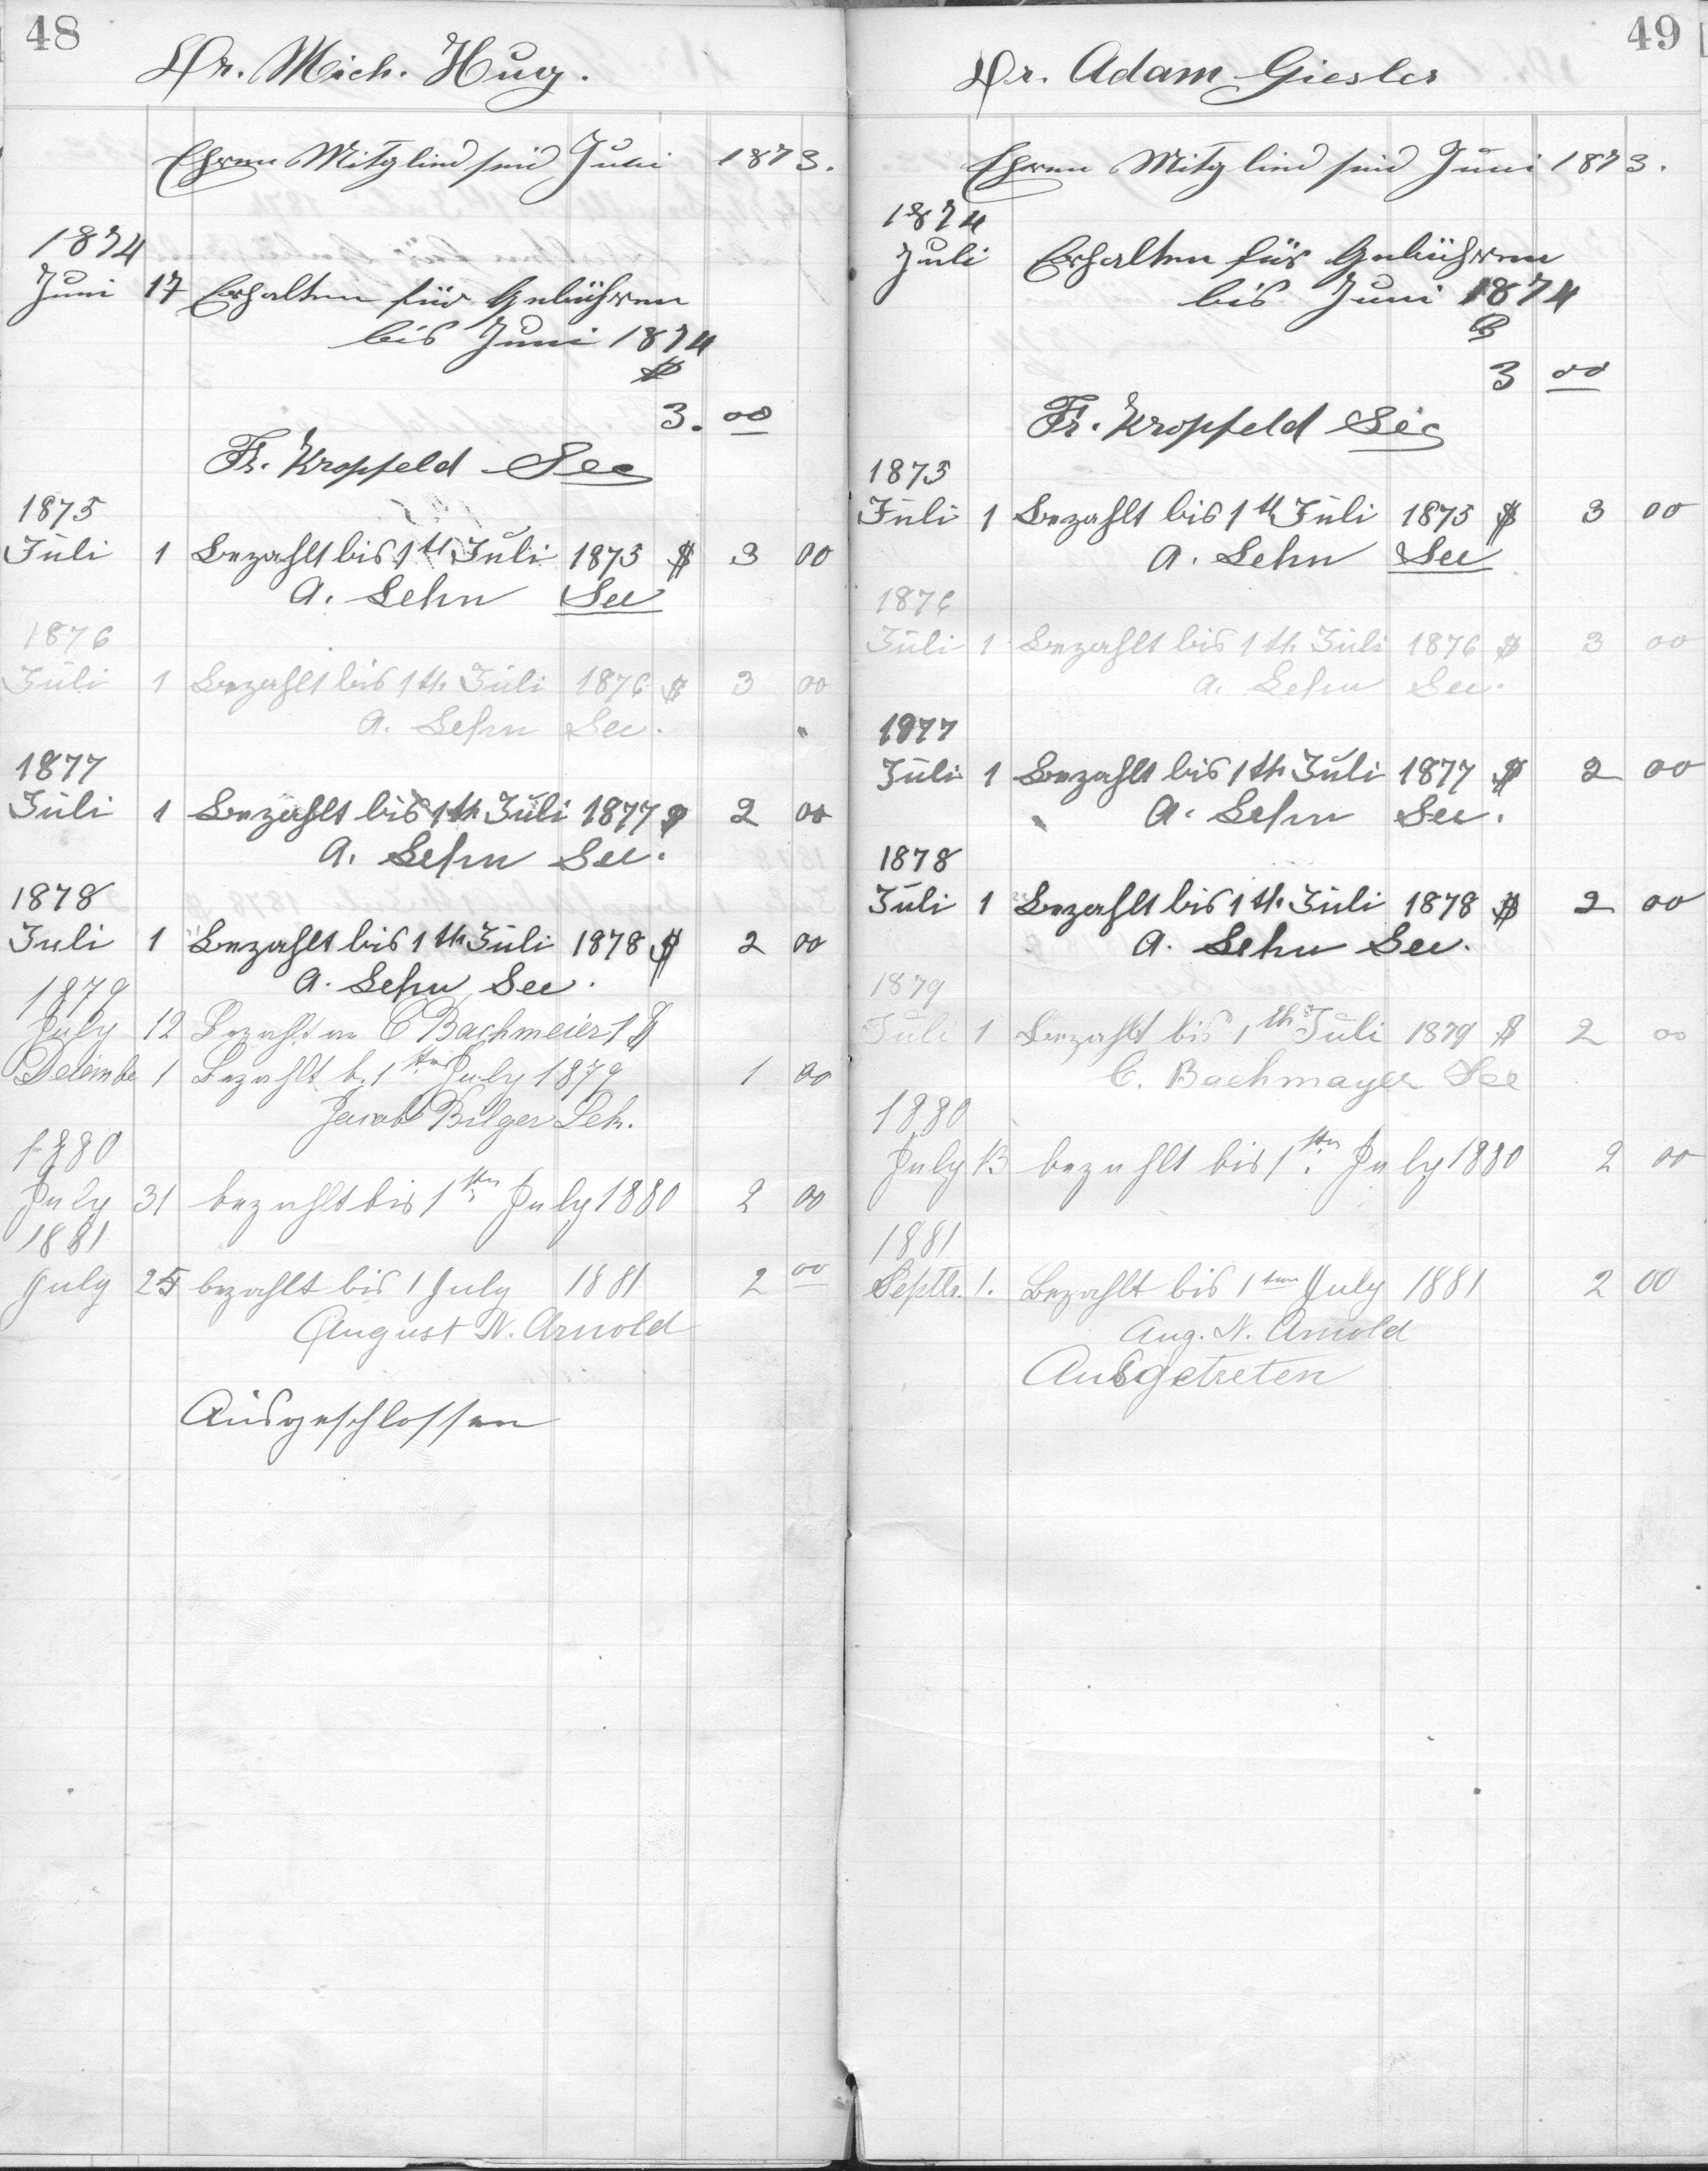 48
Hr. Mich. Hug.
Ehren Mitglied seid Juni 1873.
1874
Juni 17 Erhalten für Gebühren
bis Juni 1874
$
3. 00
Fr. Kropfeld Sec
1875
Juli 1 Bezahlt bis 1th Juli 1875 $ 3 00
A. Lehn Sec
1876
Juli 1 Bezahlt bis 1th Juli 1876 $ 3 00
A. Lehn Sec.
1877
Juli 1 Bezahlt bis 1th Juli 1877 $ 2 00
A. Lehn Sec.
1878
Juli 1 Bezahlt bis 1th Juli 1878 $ 2 00
A. Lehn Sec.
1879
July 12 Bezahlt an C Bachmeier 1 $
Decembe 1 Bezahlt b. 1ten July 1879 1 00
Jacob Bilger Sek.
1880
July 31 bezahlt bis 1ten July 1880 2 00
1881
July 25 bezahlt bis 1 July 1881 2 00
August N. Arnold
Ausgeschlossen
49
Hr. Adam Giesler
Ehren Mitglied seid Juni 1873.
1874
Juli Erhalten für Gebühren
bis Juni 1874
$
3 00
Fr. Kropfeld Sec
1875
Juli 1 Bezahlt bis 1th Juli 1875 $ 3 00
A. Lehn Sec
1876
Juli 1 Bezahlt bis 1th Juli 1876 $ 3 00
A. Lehn Sec.
1877
Juli 1 Bezahlt bis 1th Juli 1877 $ 2 00
A. Lehn Sec.
1878
Juli 1 Bezahlt bis 1th Juli 1878 $ 2 00
A. Lehn Sec.
1879
Juli 1 Bezahlt bis 1th Juli 1879 $ 2 00
C. Bachmayer Sec
1880
July 13 bezahlt bis 1ten July 1880 2 00
1881
Septbr. 1. Bezahlt bis 1ten July 1881 2 00
Aug. N. Arnold
Ausgetreten